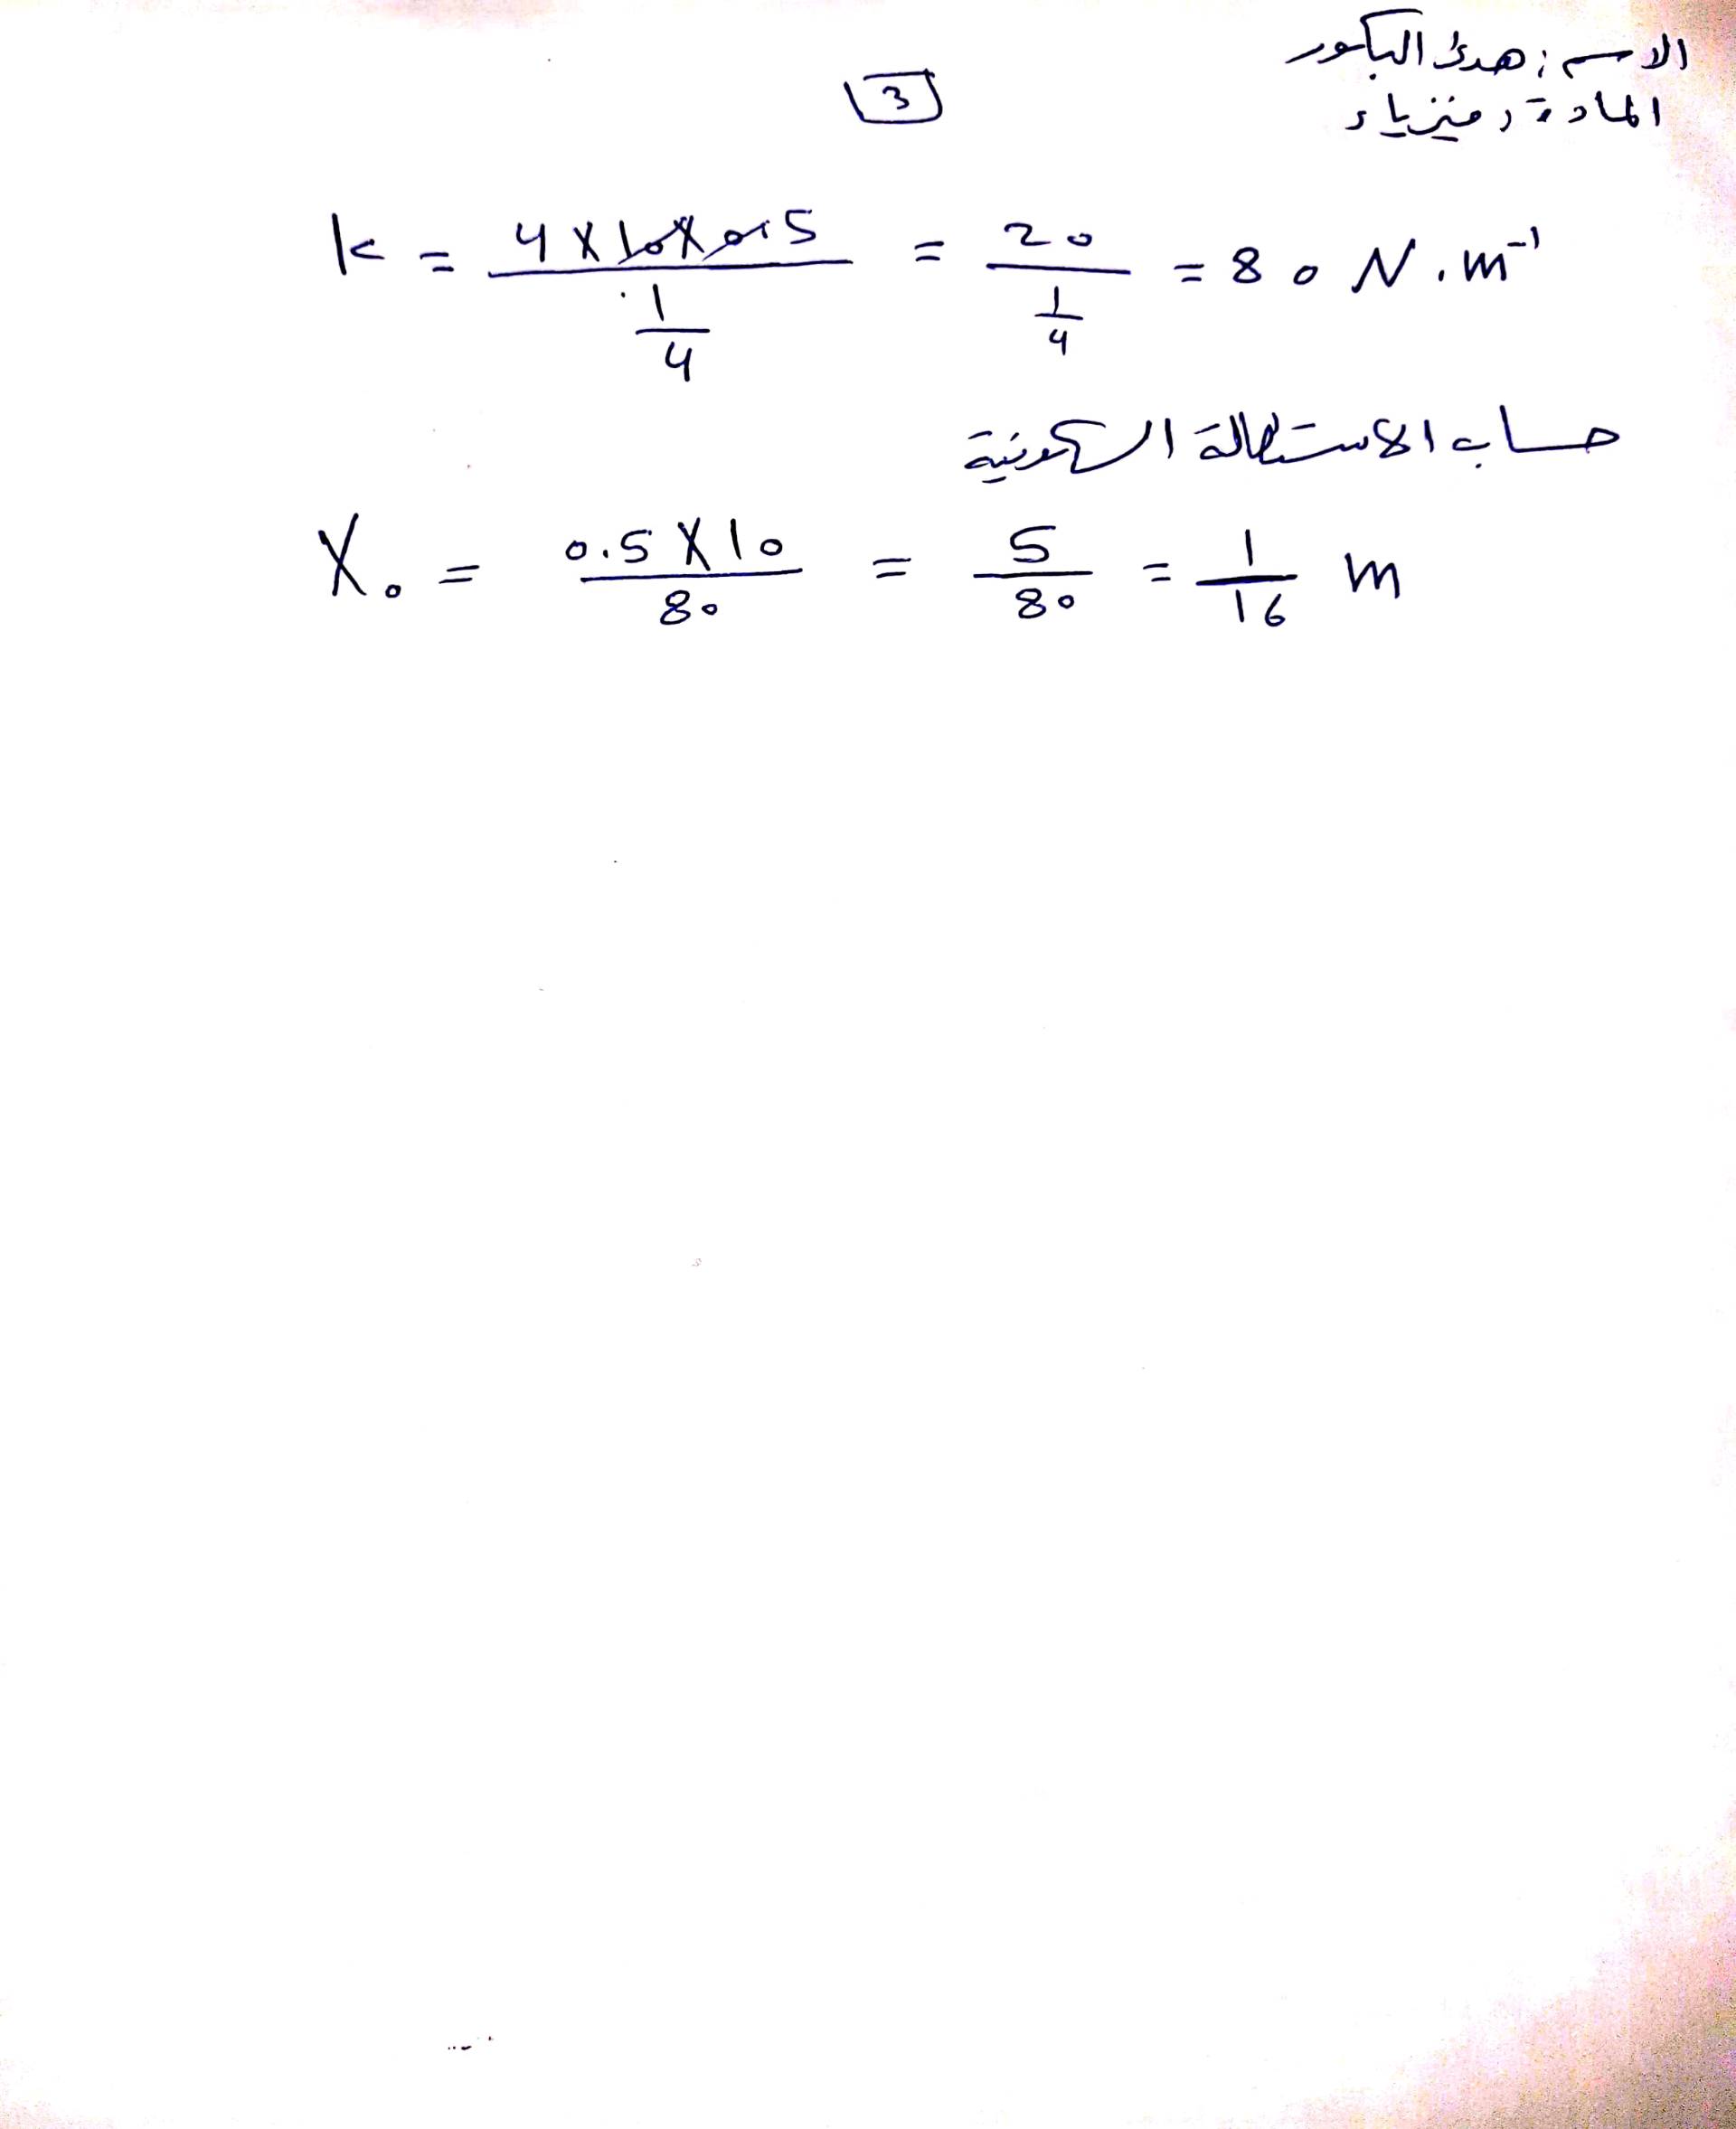 الاسم: هدى البكور
المادة: فيزياء
3
k = (4 × 10 × 0.5) / (1/4) = 20 / (1/4) = 80 N.m⁻¹
حساب الاستطالة السكونية
X₀ = (0.5 × 10) / 80 = 5 / 80 = 1 / 16 m